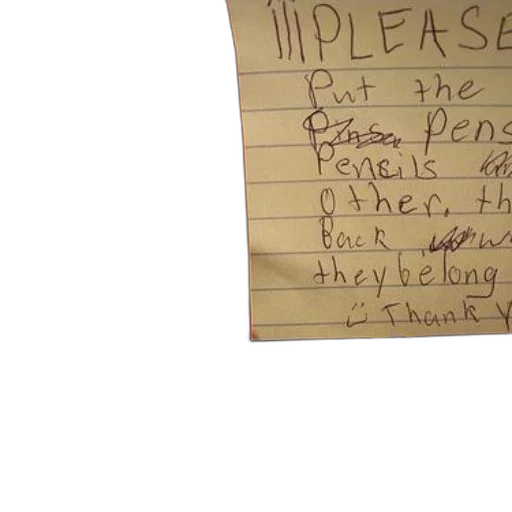 ¡¡¡PLEASE
Put the
Pens
Pencils
Other, th
Back w
they belong
Thank Y